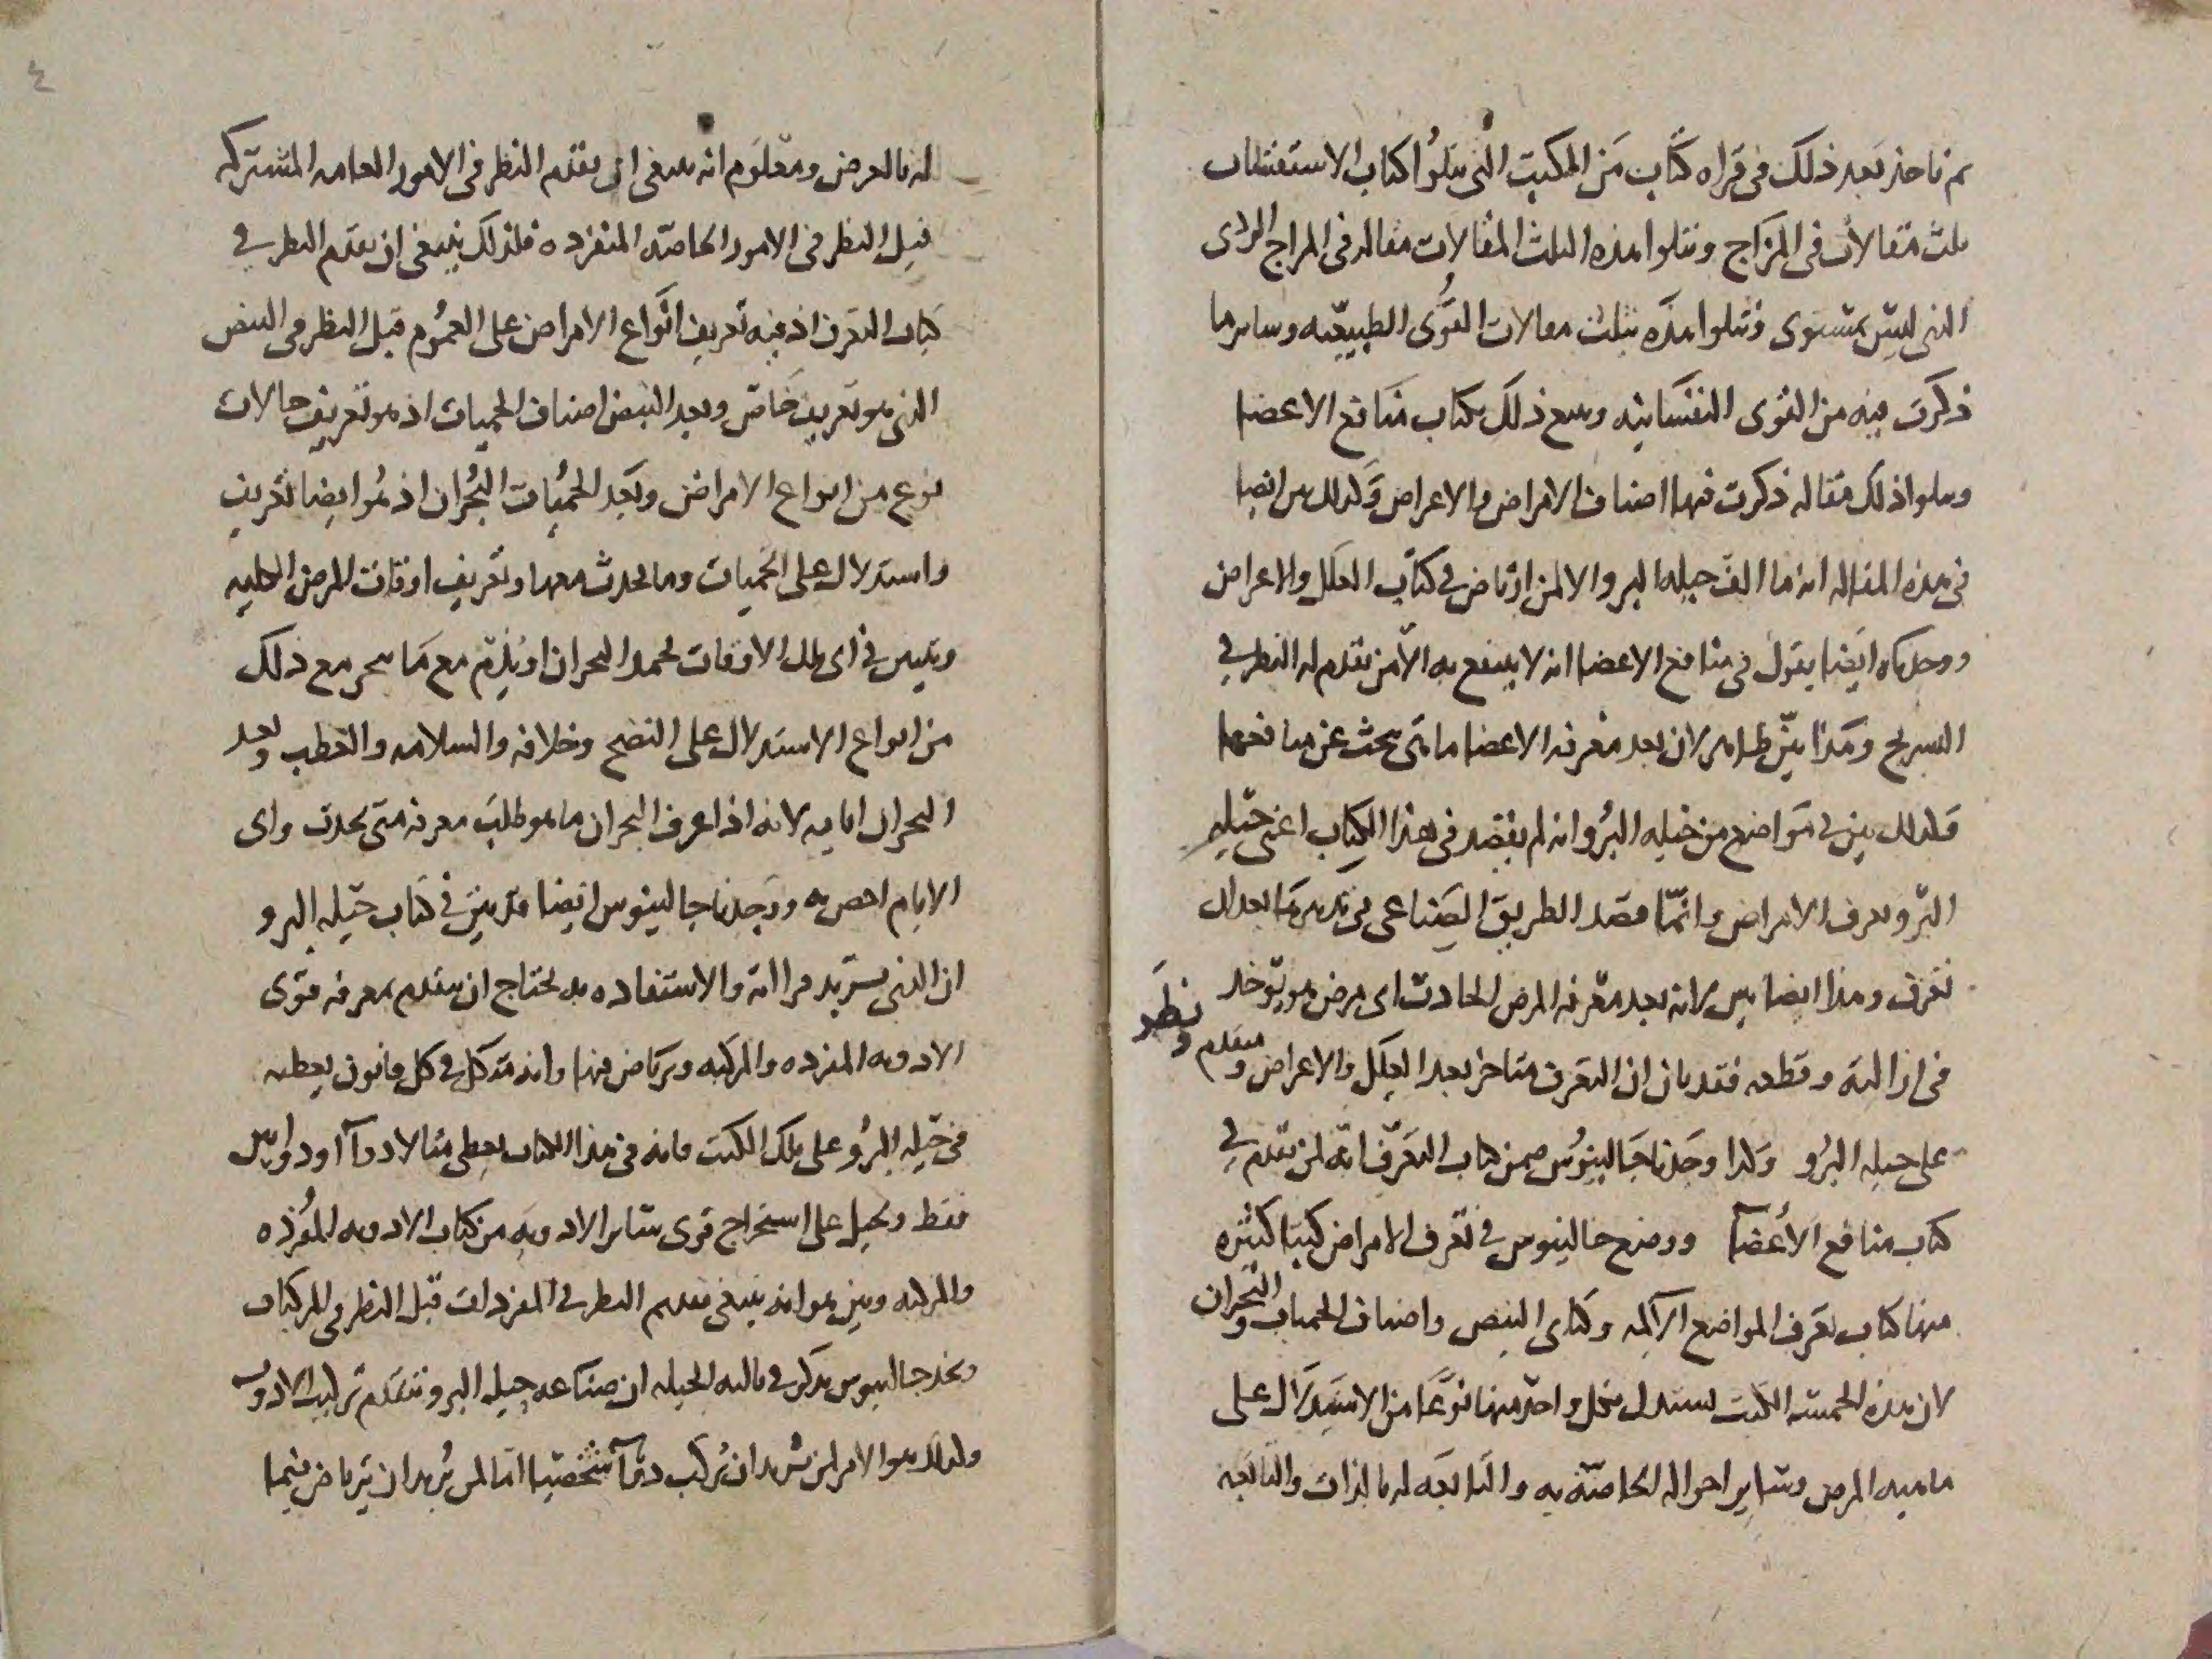 ثم ناخذ بعد ذلك في قراه كتاب من الكتب التي يتلوا كتاب الاستقسات
ثلث مقالات في المزاج وتتلوا هذه الثلث المقالات مقاله في المزاج الردى
الذي ليس بمستوى وتتلوا هذه بثلث مقالات القوى الطبيعيه وسايرما
ذكرت فيه من القوى النفسانيه ومع ذلك بكتاب منافع الاعضا
ويتلوا ذلك مقاله ذكرت فيها اصناف الامراض والاعراض وكذلك بين ايضا
في هذه المقاله انه ما الف حيله البرو الا لمن ارتاض في كتاب العلل والاعراض
ووجدناه ايضا يقول في منافع الاعضا انه لا ينتفع به الا من تقدم له النظر في
التشريح وهذا بين ظاهر لان بعد معرفه الاعضا ماهي يبحث عن منافعها
وكذلك بين في مواضع من حيله البرو انه لم يقصد في هذا الكتاب اعنى حيله
البرو تعرف الامراض وانما قصد الطريق الصناعى في تدبيرها بعد ان
تعرف وهذا ايضا بين لانه بعد معرفه المرض الحادث اى مرض هو يوخذ
في ازالته وقطعه فقد بان ان التعرف متاخر بعد العلل والاعراض ومتقدم ونظر
على حيله البرو وكذا وجدنا جالينوس ضمن كتاب التعرف انه لمن تقدم في
كتاب منافع الأعضآ ووضع جالينوس في تعرف الامراض كتبا كثيره
منها كتاب تعرف المواضع الآلمه وكتابى النبض واصناف الحميات والبحران
لان هذه الخمسه الكتب يستدل بكل واحد منها نوعا من الاستدلال على
ماهيه المرض وساير احواله الخاصه به والتابعه له بالذات والتابعه
٤
له بالعرض ومعلوم انه ينبغى ان يتقدم النظر في الامور العامه المشتركه
قبل النظر في الامور الخاصه المنفرده فلذلك ينبغى ان يقدم النظر في
كتاب التعرف اذ فيه تعريف انواع الامراض على العموم قبل النظر في النبض
الذي هو تعريف خاص وبعد النبض اصناف الحميات اذ هو تعريف حالات
نوع من انواع الامراض وبعد الحميات البحران اذ هو ايضا تعريف
واستدلال على الحميات وما يحدث معها وتعريف اوقات المرض الكليه
وتبيين في اى تلك الاوقات يحمد البحران او يذم مع ما يجر مع ذلك
من انواع الاستدلال على النضج وخلافه والسلامه والعطب وبعد
البحران ايامه لانه اذا عرف البحران ما هو طلب معرفه متى يحدث واى
الايام اخص به ووجدنا جالينوس ايضا قد بين في كتاب حيله البرو
ان الذي يريد قراته والاستفاده به يحتاج ان يتقدم بمعرفه قوى
الادويه المفرده والمركبه ويرتاض فيها وانه يتوكل في كل قانون يعطيه
في حيله البرو على تلك الكتب فانه في هذا الكتاب يعطى مثالا دوآ او دواين
فقط ويحيل على استخراج قوى ساير الادويه من كتاب الادويه المفرده
والمركبه وبين هو انه ينبغى تقدم النظر في المفردات قبل النظر في المركبات
ونجد جالينوس يذكر في ثالثه الحيله ان صناعه حيله البرو تتقدم تركيب الادويه
وذلك هو الامر لمن يريد ان يركب دوآ شخصيا اما لمن يريد ان يرتاض فيما